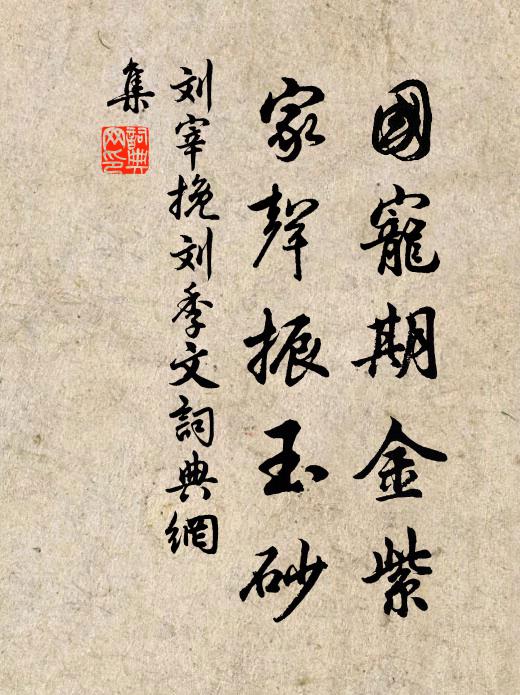 國寵期金紫
家聲振玉砂
刘宰挽刘季文詞典網
集
詞典网印